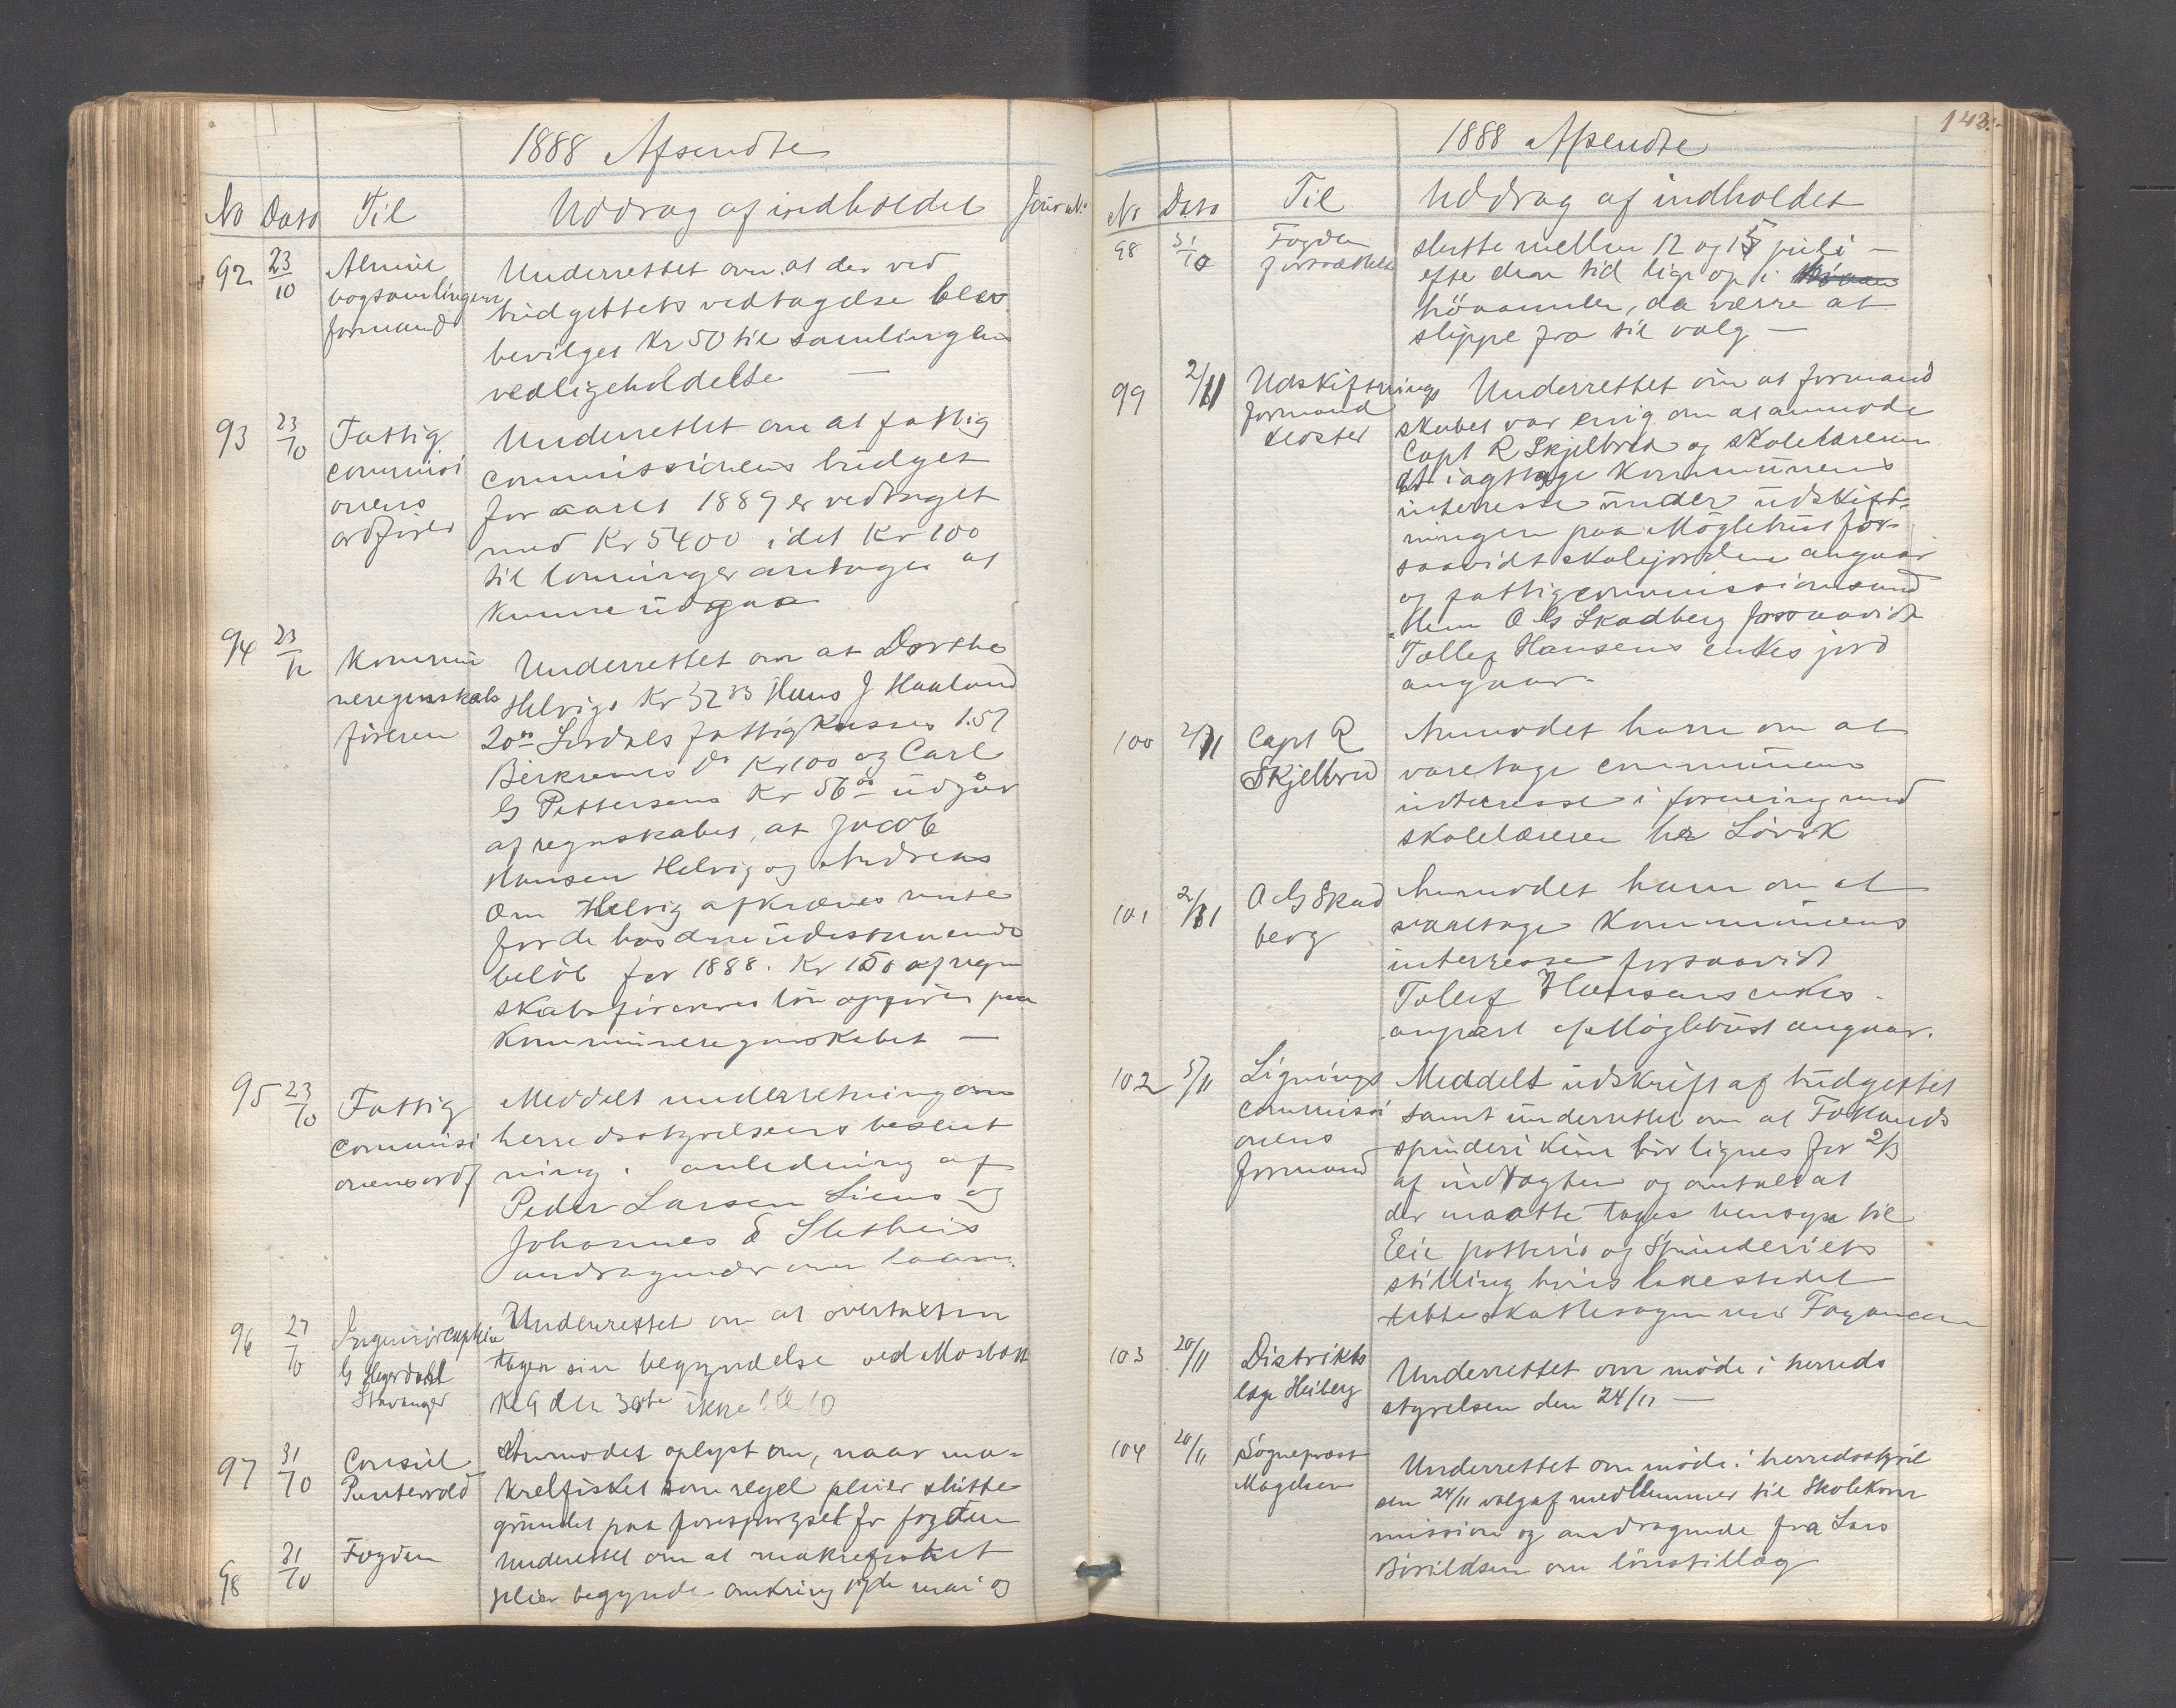 1888 Afsendte
No Dato Til Uddrag af indholdet Journal.
92 23/10 Almue Underrettet om at der ved
bogsamlingens budgettets vedtagelse blev
formand bevilget Kr 50 til samlingens
vedligeholdelse —
93 23/10 Fattig Underrettet om at fattig
commissi commissionens budget
onens for aaret 1889 er vedtaget
ordfører med Kr 5400 idet Kr 100
til lønninger antages at
kunne udgaa
94 23/10 Kommu Underrettet om at Dorthe
neregnskabs Helvigs Kr 32 33 Hans J Haaland
føreren 20 Sirdals fattigkasses 1.57
Birkrems do Kr 100 og Carl
G Pettersens Kr 56 udgår
af regnskabet, at Jacob
Hansen Helvig og Andreas
Om Helvig afkræves rente
for de hos dem udestaaende
beløb for 1888. Kr 150 af regn
skabsførerens løn opføres paa
Kommuneregnskabet —
95 23/10 Fattig Meddelt underretning om
commissi herredsstyrelsens beslut
onens ordf ning i anledning af
Peder Larsen Liens og
Johannes E Sletheis
andragender om laan.
96 27/10 Ingeniørcaptein Underrettet om at overtaxten
G Hegerdahl tager sin begyndelse ved Mosbæk
Stavanger Kl 9 den 30te ikke kl 10
97 31/10 Consul Anmodet oplyst om, naar ma-
Puntervold krelfisket som regel pleier slutte
grundet paa forespørgsel fr fogden
98 31/10 Fogden Underrettet om at makrelfisket
pleier begynde omkring 17de mai og
143.
1888 Afsendte
No Dato Til Uddrag af indholdet
98 31/10 Fogden slutte mellem 12 og 15 juli —
fortsættelse efter den tid ligeop i
høvaanden, da værre at
slippe fra til valg —
99 2/11 Udskiftnings Underrettet om at formand
formand skabet var enig om at anmode
Kloster Capt R Skjelbred og skolelæreren
at iagttage Kommunens
interesse under udskift-
ningen paa Møglebust for-
saavidt skolejorden angaar
og fattigcommissionsmed
lem O G Skadberg forsaavidt
Tollef Hansens enkes jord
angaar.
100 2/11 Capt R Anmodet ham om at
Skjelbred varetage communens
interesse i forening med
skolelærer hr Løvik
101 2/11 O G Skad Anmodet ham om at
berg varetage Kommunens
interresse forsaavidt
Tollef Hansens enkes
anpart af Møglebust angaar.
102 5/11 Lignings Meddelt udskrift af budgettet
commissi samt underrettet om at Fotlands
onens spinderi kun bør lignes for 2/3
formand af indtægten og omtalt at
der maatte tages hensyn til
Eie potteri og Spinderiets
stilling hvis lavestedet
tabte skattesagen med Fayancen
103 20/11 Distrikts Underrettet om møde i herreds
læge Heiberg styrelsen den 24/11 —
104 20/11 Sogneprest Underrettet om møde i herredsstyrel
Magelsen sen 24/11 valg af medlemmer til Skolekom
mission og andragende fra Lars
Bårildsen om lønstillæg